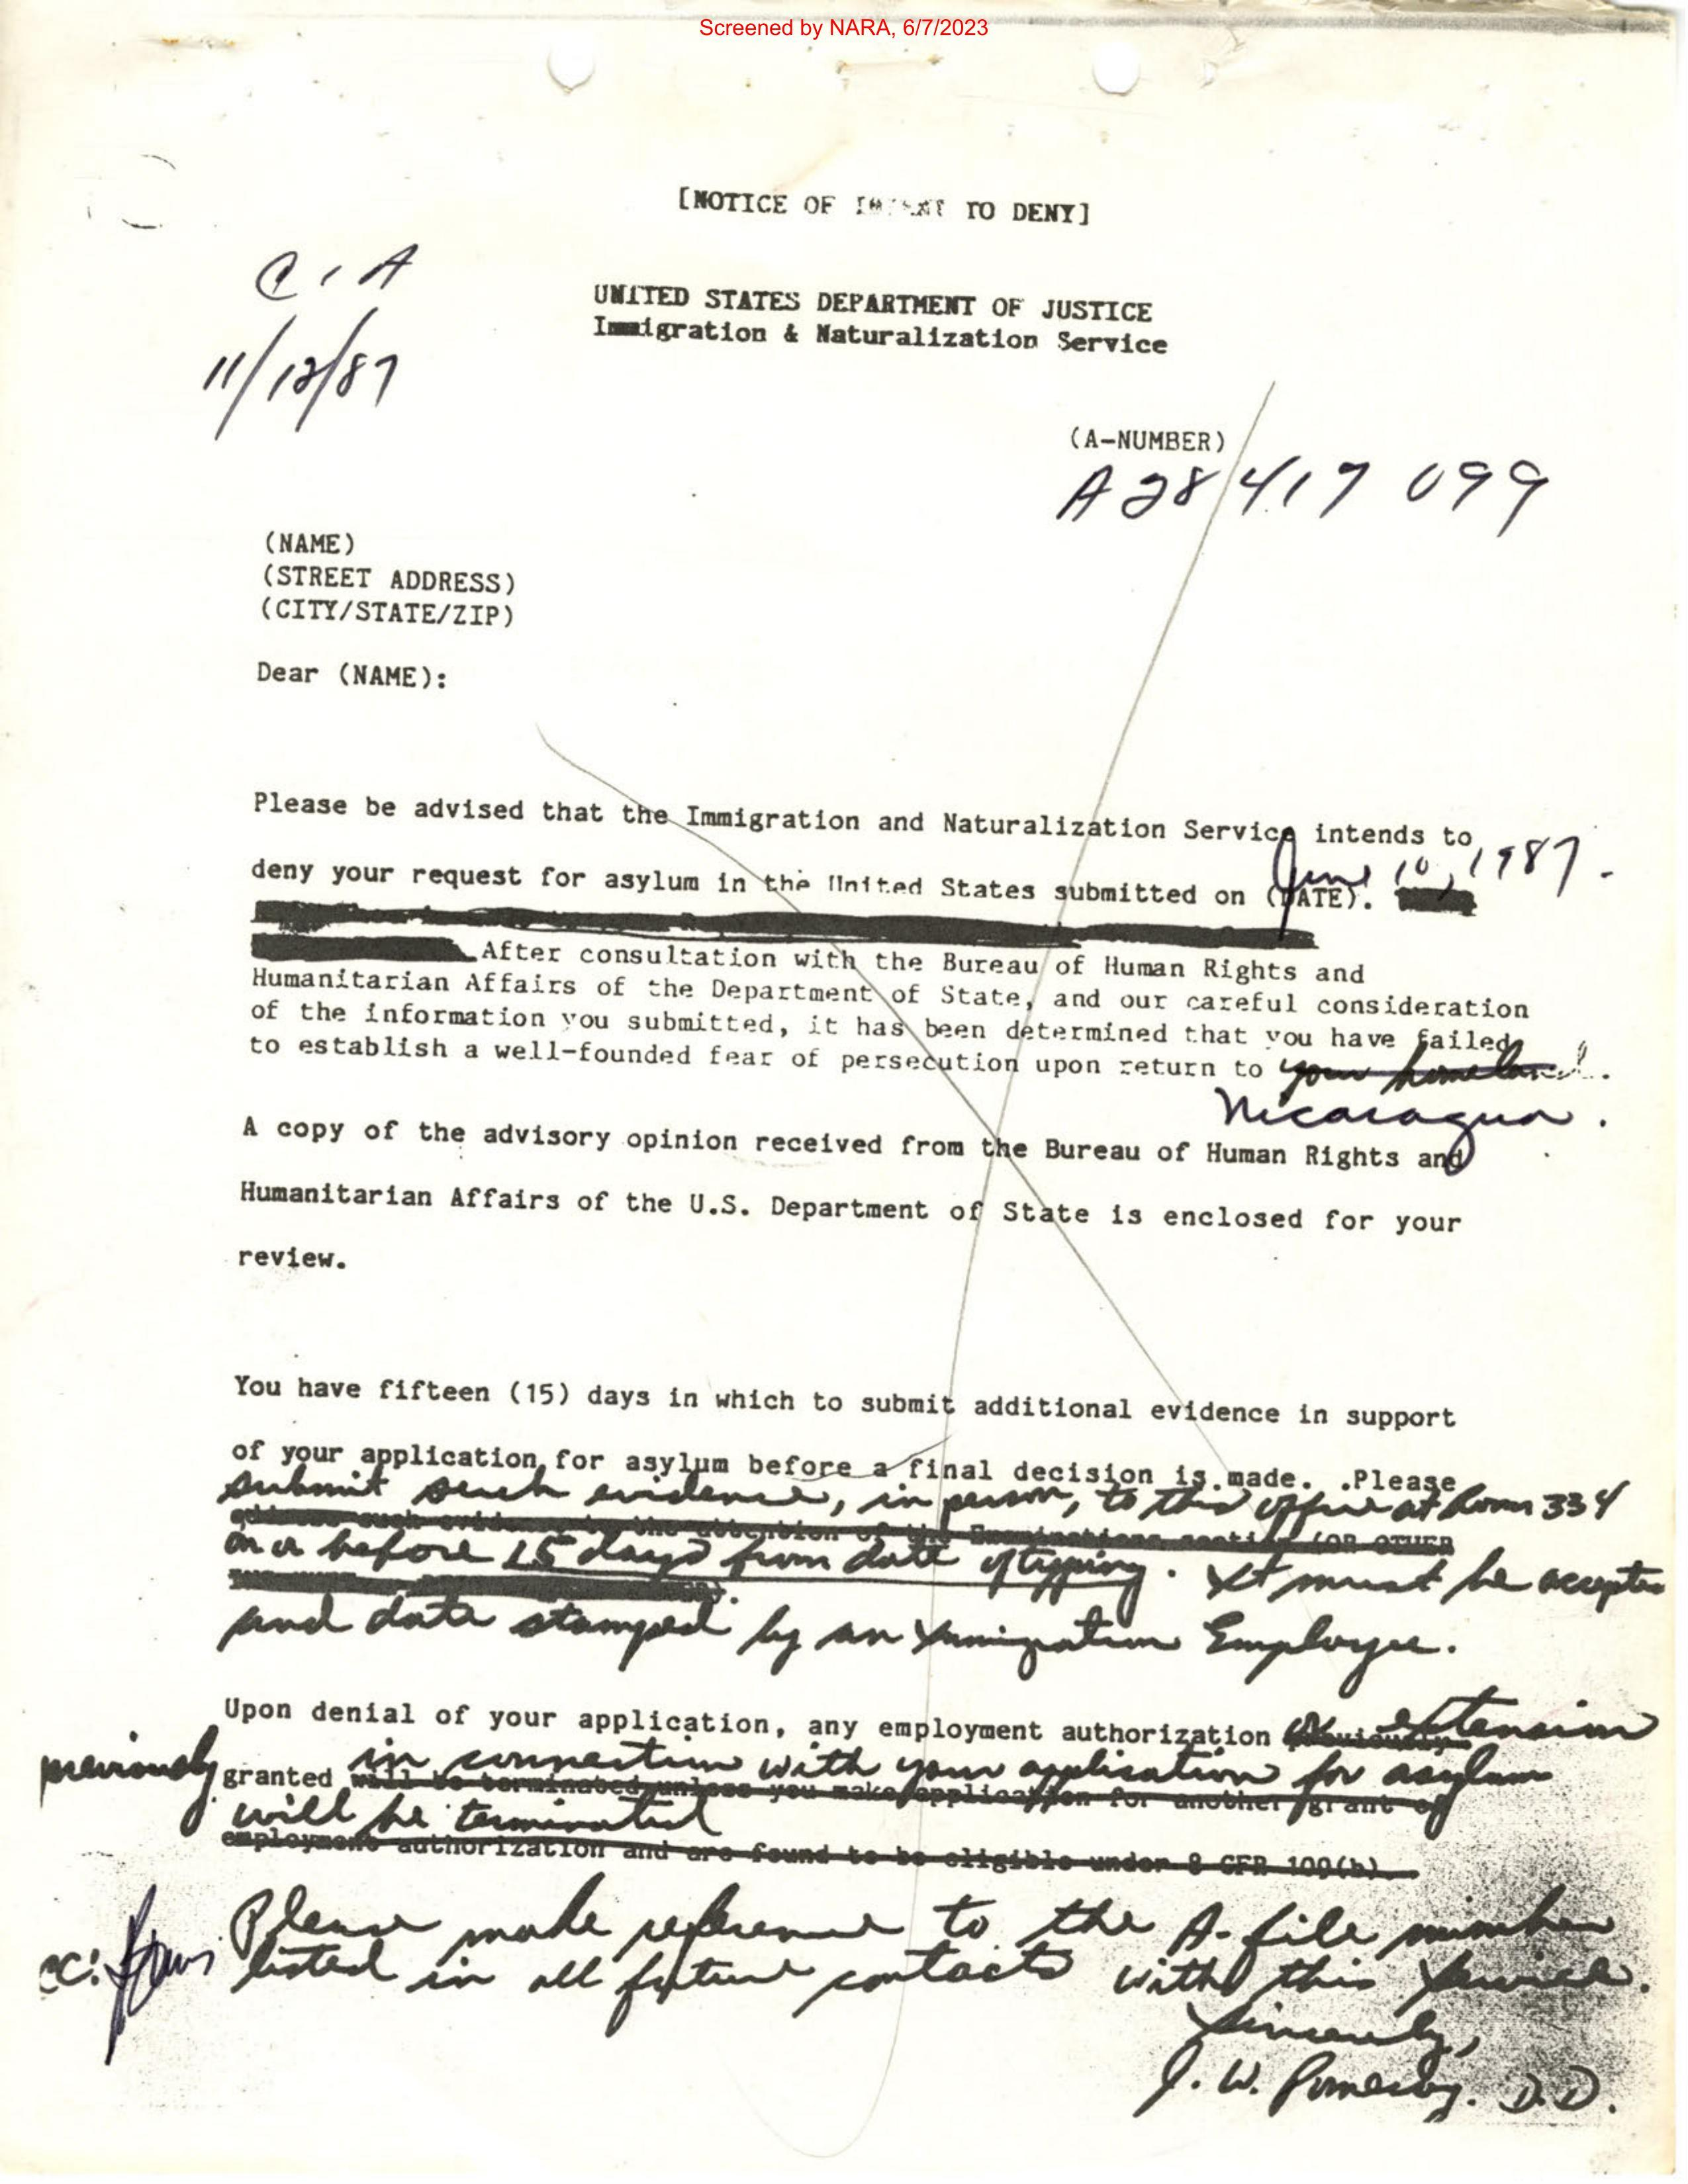 Screened by NARA, 6/7/2023
[NOTICE OF INTENT TO DENY]
C, A
11/12/87
UNITED STATES DEPARTMENT OF JUSTICE
Immigration & Naturalization Service
(A-NUMBER)
A28 417 099
(NAME)
(STREET ADDRESS)
(CITY/STATE/ZIP)
Dear (NAME):
Please be advised that the Immigration and Naturalization Service intends to
June 10, 1987.
deny your request for asylum in the United States submitted on (DATE).
After consultation with the Bureau of Human Rights and
Humanitarian Affairs of the Department of State, and our careful consideration
of the information you submitted, it has been determined that you have failed
to establish a well-founded fear of persecution upon return to your homeland.
Nicaragua.
A copy of the advisory opinion received from the Bureau of Human Rights and
Humanitarian Affairs of the U.S. Department of State is enclosed for your
review.
You have fifteen (15) days in which to submit additional evidence in support
of your application for asylum before a final decision is made. .Please
submit such evidence, in person, to this office at Room 334
address such evidence to the attention of the Examinations section (OR OTHER
on or before 15 days from date of typing. It must be accepted
and date stamped by an Immigration Employee.
Upon denial of your application, any employment authorization or extension
previously granted in connection with your application for asylum
will be terminated unless you make application for another grant of
will be terminated
employment authorization and are found to be eligible under 8 CFR 109(b).
Please make reference to the A-file number
cc:
listed in all future contacts with this Service.
Sincerely,
J. W. Pomeroy. D.D.